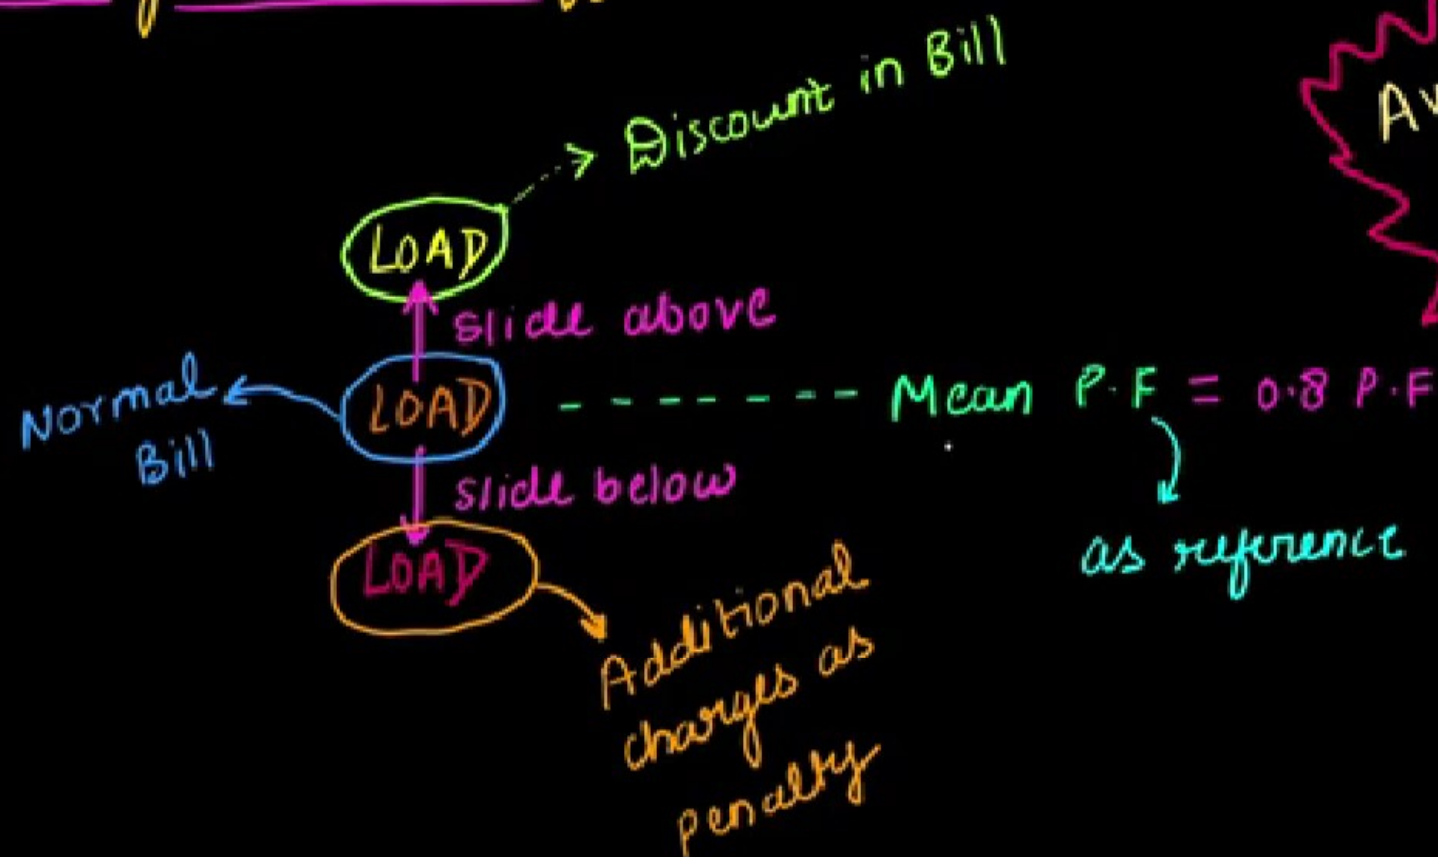 Discount in Bill
LOAD
slide above
Normal
Bill
LOAD
Mean P.F = 0.8 P.F
slide below
as reference
LOAD
Additional
charges as
penalty